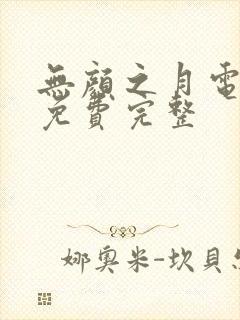 無顏之月電
免費完整
娜奧米-坎貝